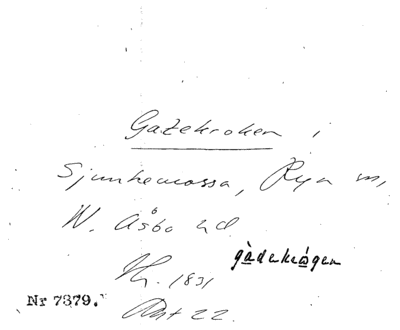 Gatekroken i
Sjunkemossa, Rya sn,
N. Åsbo hd.
gàdekrågen
1831
Nr 7379.
Akt 22.